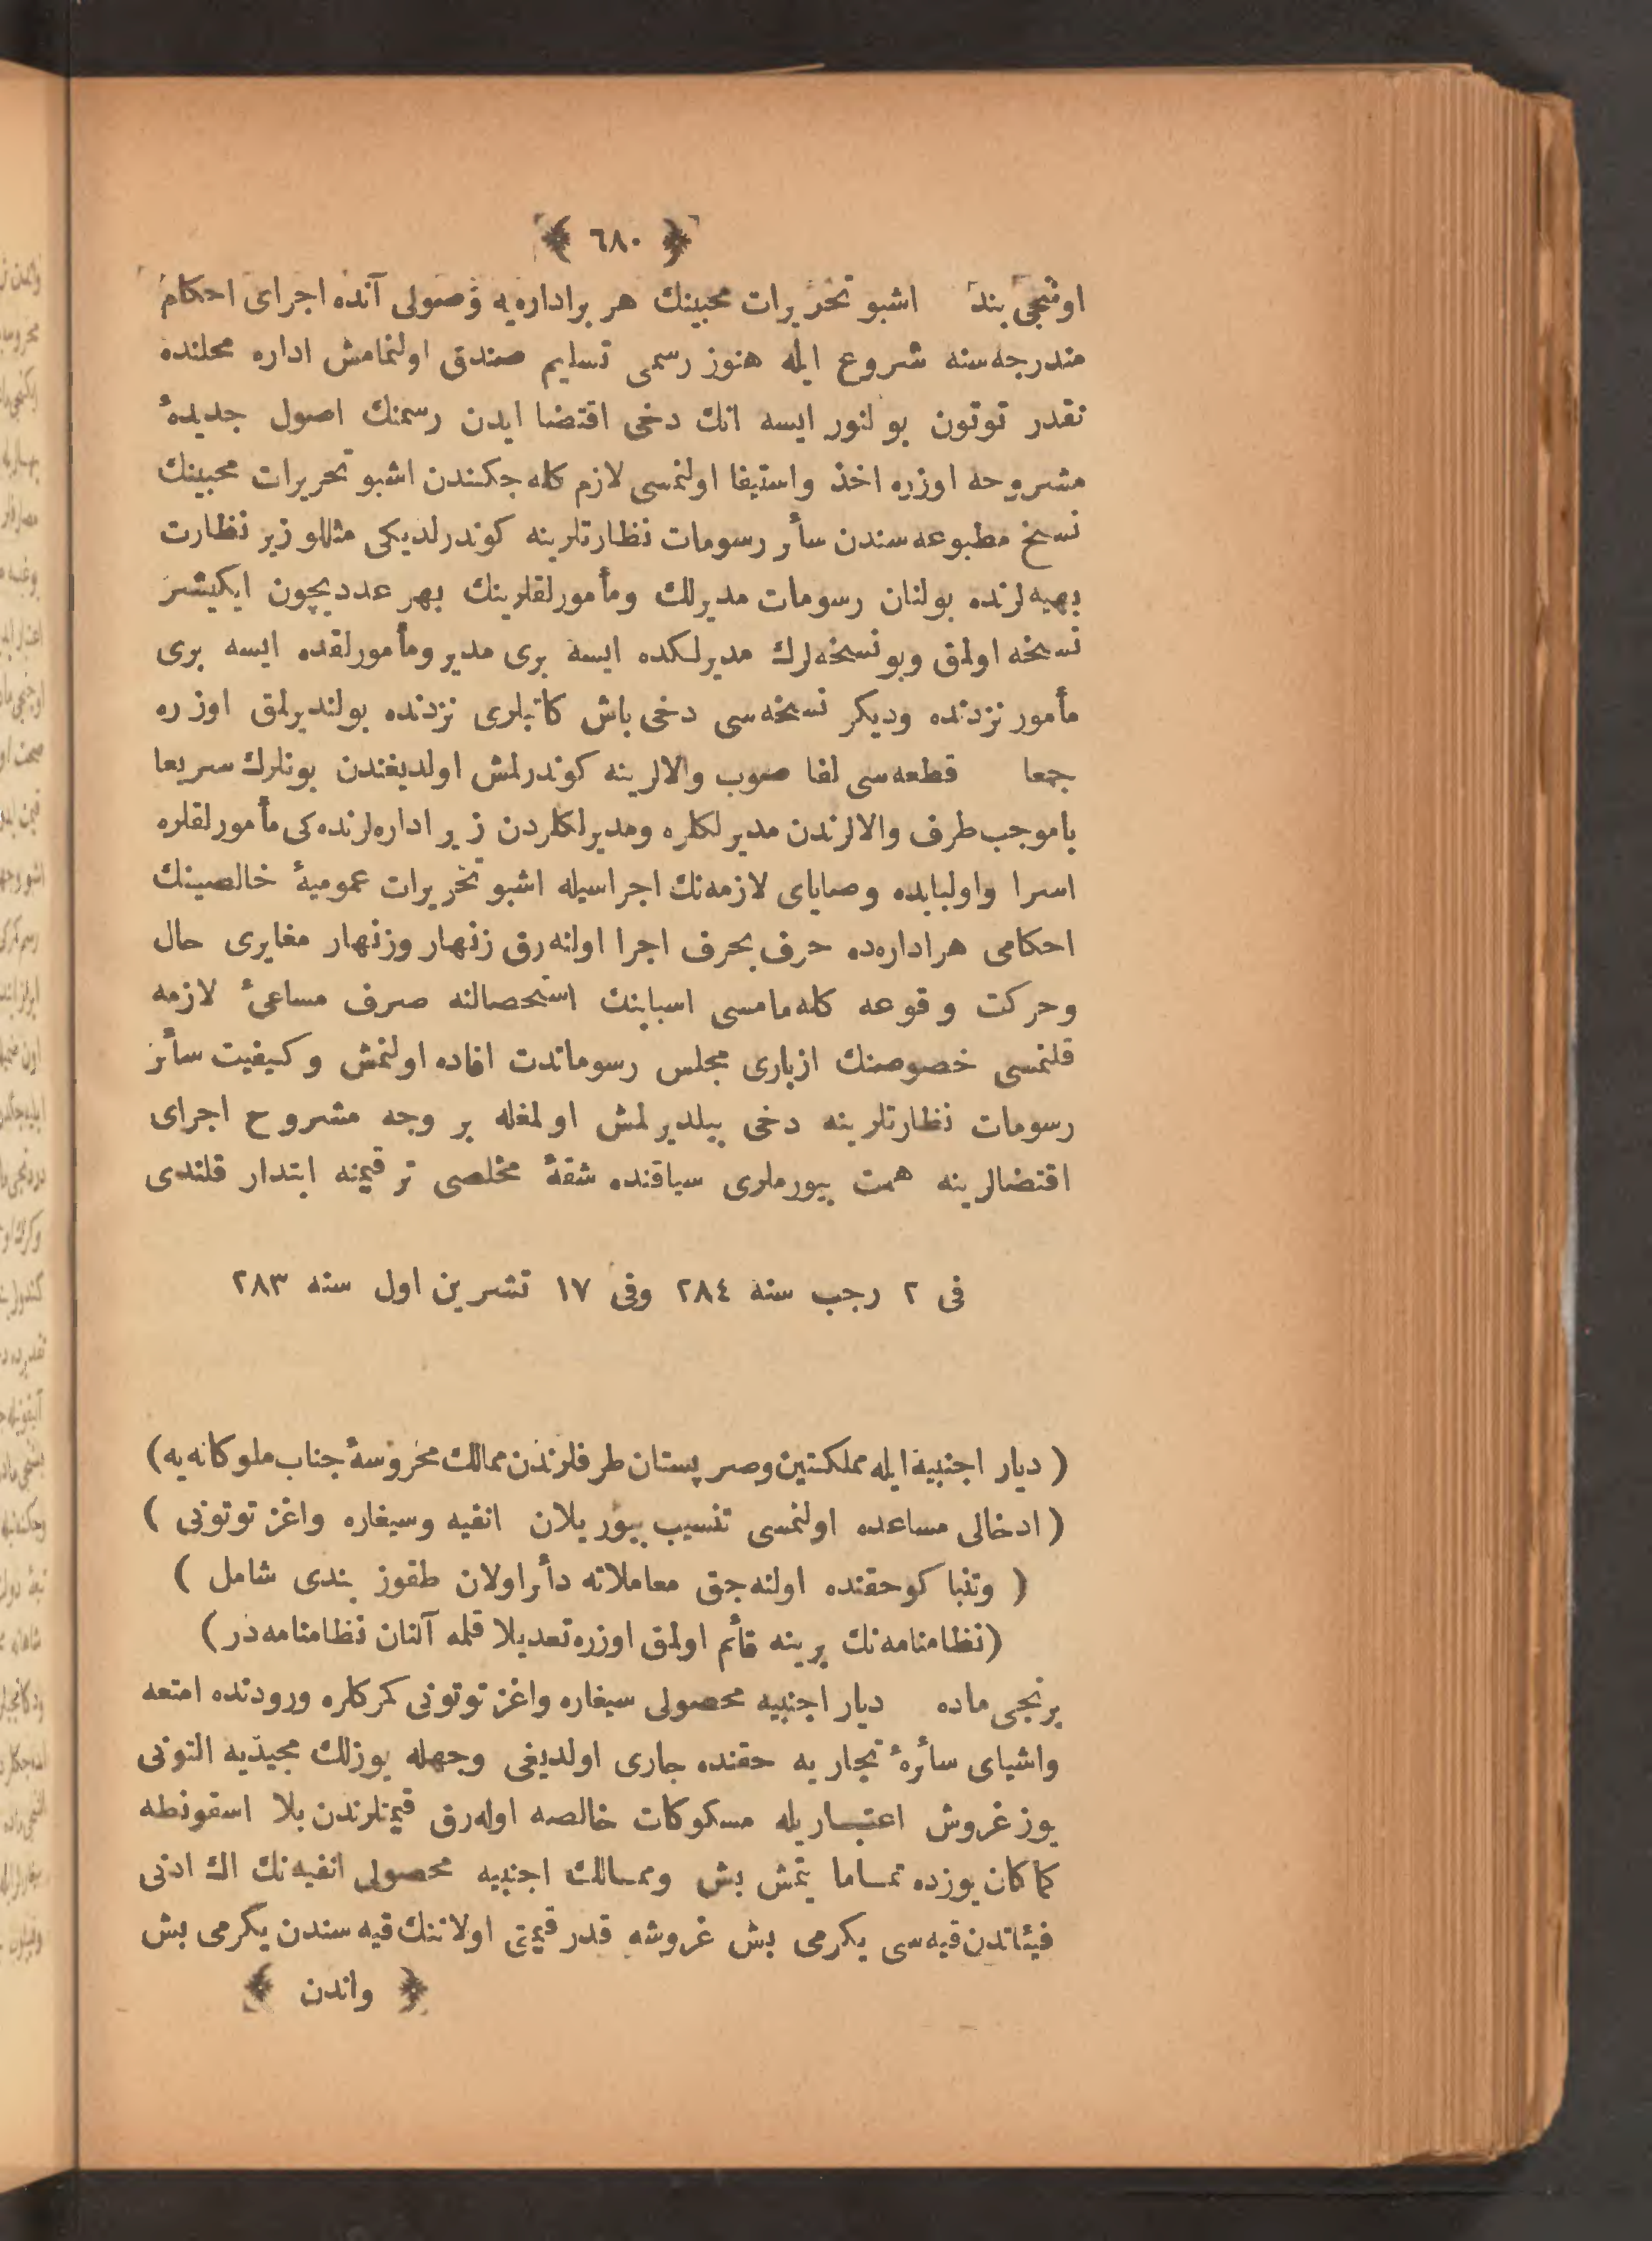 ﴿ ٦٨٠ ﴾
اونجی بند اشبو تحریرات محبینك هر براداره‌یه وصولی آنده اجرای احکام
مندرجه‌سنه شروع ایله هنوز رسمی تسلیم صندق اولنمامش اداره محلنده
نقدر توتون بولنور ایسه انك دخی اقتضا ایدن رسمنك اصول جدیدهٔ
مشروحه اوزره اخذ واستیفا اولنمسی لازم کله‌جکندن اشبو تحریرات محبینك
نسخ مطبوعه‌سندن سأر رسومات نظارتلرینه کوندرلدیکی مثللو زیر نظارت
بهیه‌لرنده بولنان رسومات مدیرلك ومأمورلقلرینك بهر عددیچون ایکیشر
نسخه اولمق وبو نسخه‌لرك مدیرلکده ایسه بری مدیر ومأمورلقده ایسه بری
مأمور نزدنده ودیکر نسخه‌سی دخی باش کاتبلری نزدنده بولندیرلمق اوزره
جمعا قطعه‌سی لفا صوب والالرینه کوندرلمش اولدیغندن بونلرك سریعا
باموجب طرف والالرندن مدیرلکلره ومدیرلکلردن زیر اداره‌لرنده‌کی مأمورلقلره
اسرا واولبابده وصایای لازمه‌نك اجراسیله اشبو تحریرات عمومیهٔ خالصینك
احکامی هر اداره‌ده حرف بحرف اجرا اولنه‌رق زنهار وزنهار مغایری حال
وحرکت وقوعه کله‌مامسی اسبابنك استحصالنه صرف مساعیٔ لازمه
قلنمسی خصوصنك ازباری مجلس رسوماتدن افاده اولنمش وکیفیت سأر
رسومات نظارتلرینه دخی بیلدیرلمش اولمغله بر وجه مشروح اجرای
اقتضالرینه همت بیورملری سیاقنده شقهٔ مخلصی ترقیمنه ابتدار قلندی
فی ٢ رجب سنه ٢٨٤ وفی ١٧ تشرین اول سنه ٢٨٣
( دیار اجنبیه ایله مملکتین وصرپستان طرفلرندن ممالك محروسهٔ جناب ملوکانه‌یه )
( ادخالی مساعده اولنمسی تنسیب بیوریلان انفیه وسیغاره واغز توتونی )
( وتنباکو حقنده اولنه‌جق معاملاته دأر اولان طقوز بندی شامل )
( نظامنامه‌نك یرینه قأم اولمق اوزره تعدیلا قلمه آلنان نظامنامه‌در )
برنجی ماده دیار اجنبیه محصولی سیغاره واغز توتونی کمرکلره ورودنده امتعه
واشیای سأرهٔ تجاریه حقنده جاری اولدیغی وجهله یوزلك مجیدیه التونی
یوز غروش اعتباریله مسکوکات خالصه اوله‌رق قیمتلرندن بلا اسقونطه
کماکان یوزده تماما یتمش بش وممالك اجنبیه محصولی انفیه‌نك اك ادنی
فیئاتدن قیه‌سی یکرمی بش غروشه قدر قیمتی اولاننك قیه‌سندن یکرمی بش
﴿ واندن ﴾